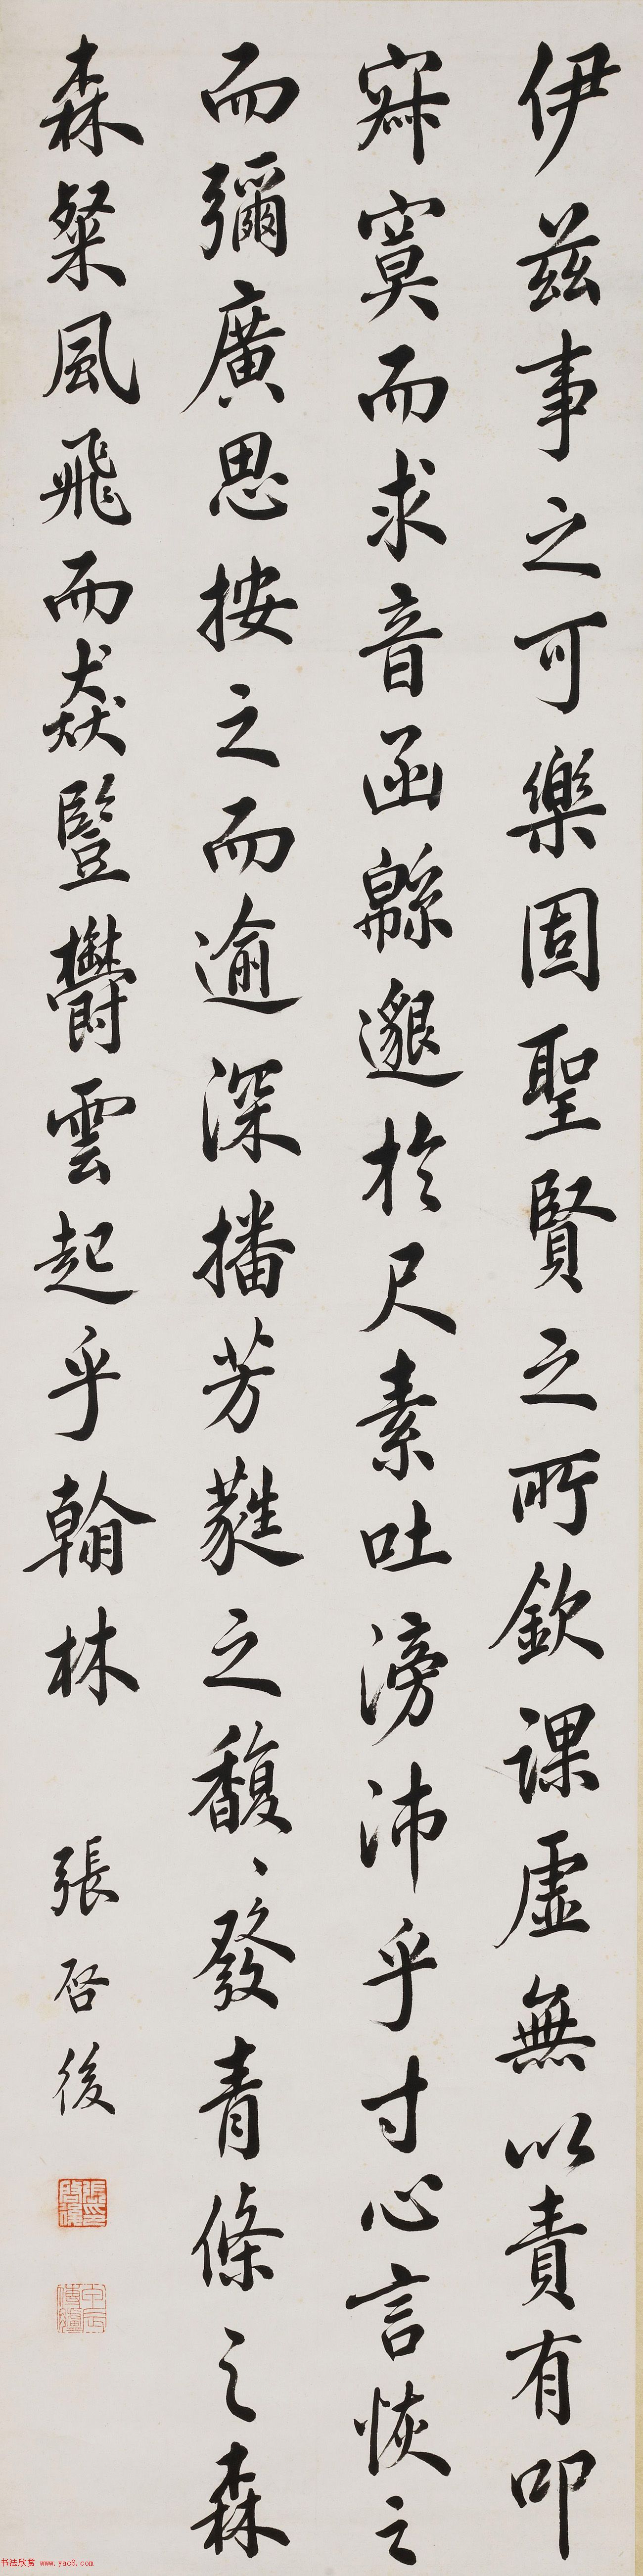 伊茲事之可樂固聖賢之所欽課虛無以責有叩
寂寞而求音函緜邈於尺素吐滂沛乎寸心言恢之
而彌廣思按之而逾深播芳蕤之馥〻發青條之森
森粲風飛而猋豎鬱雲起乎翰林
張啓後
張啓後印
甲辰傳臚
书法欣赏 www.yac8.com